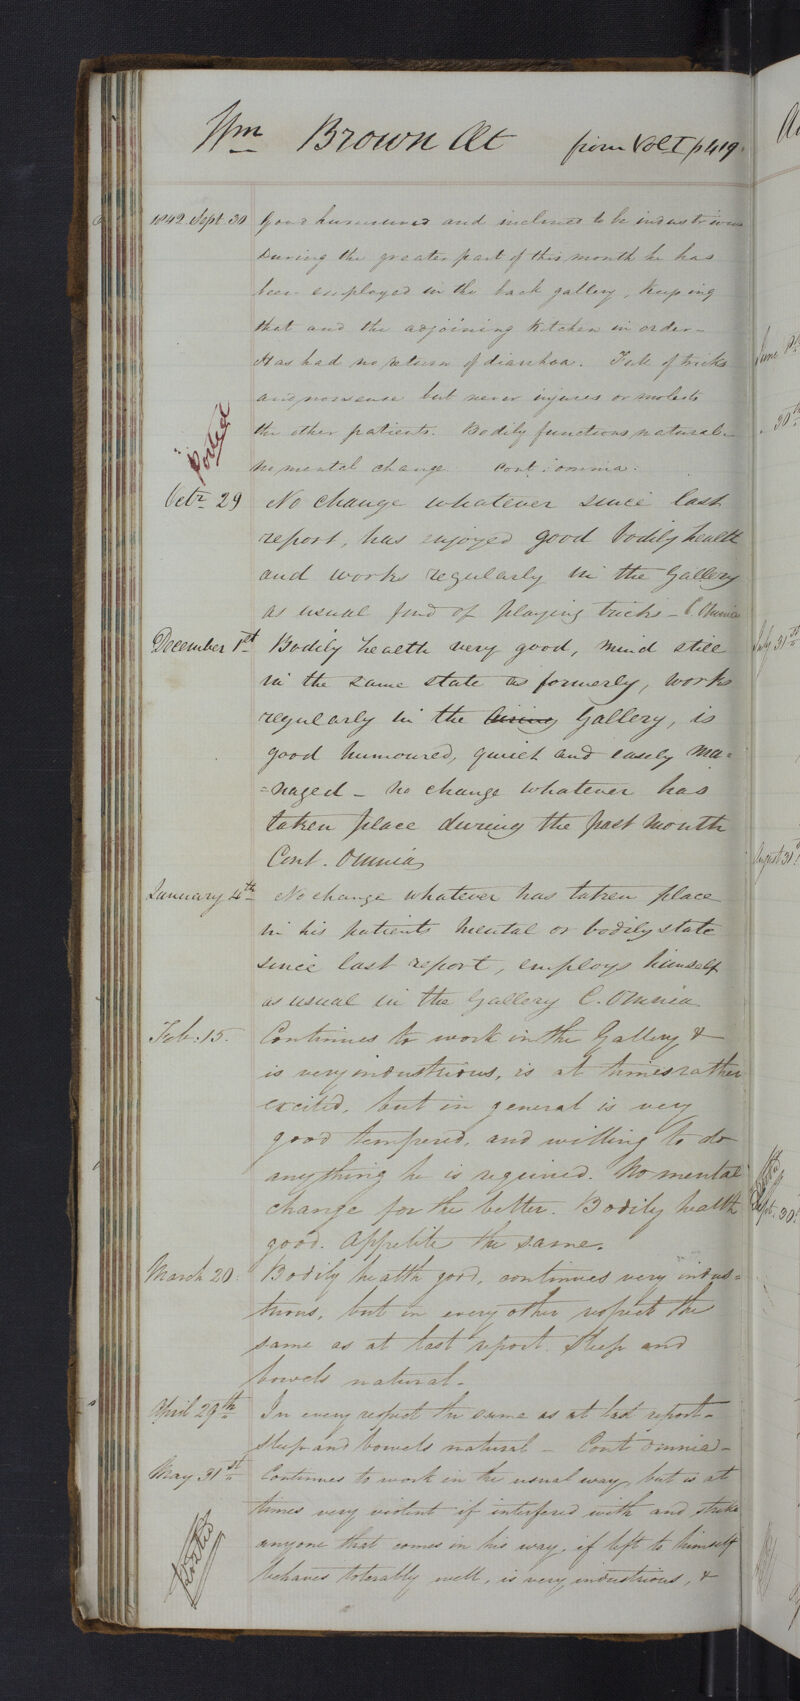 Wm Brown Æt from Vol I p 419.
1842 Sept. 30 Good humoured and inclined to be industrious
During the greater part of this month he has
been employed in the back gallery, keeping
that and the adjoining kitchen in order-
Has had no return of diarrhœa. Full of tricks
and nonsense but never injures or molests
the other patients. Bodily functions natural-
Posted
no mental change cont: omnia.
Octr 29 No change whatever since last
report, has enjoyed good bodily health
and works regularly in the Gallery
as usual fond of playing tricks - C. Omnia
December 1st Bodily health very good, mind still
in the same state as formerly, works
regularly in the Gallery, is
good humoured, quiet and easily ma=
=naged - no change whatever has
taken place during the past month
Cont. Omnia
January 4th No change whatever has taken place
in his patients mental or bodily state
since last report, employs himself
as usual in the Gallery C. Omnia
Feb. 15. Continues to work in the Gallery &
is very industrious, is at times rather
excited, but in general is very
good tempered, and willing to do
anything he is required. No mental
change for the better. Bodily health
good. Appetite the same.
March 20. Bodily health good, continues very indus=
trious, but in every other respect the
same as at last report. Sleep and
bowels natural.
April 29th In every respect the same as at last report-
sleep and bowels natural - Cont omnia-
May 31st Continues to work in the usual way, but is at
times very violent if interfered with and strikes
anyone that comes in his way, if left to himself
Posted
behaves tolerably well, is very industrious, &
June
30th
July 31st
August 31st
Sept. 30